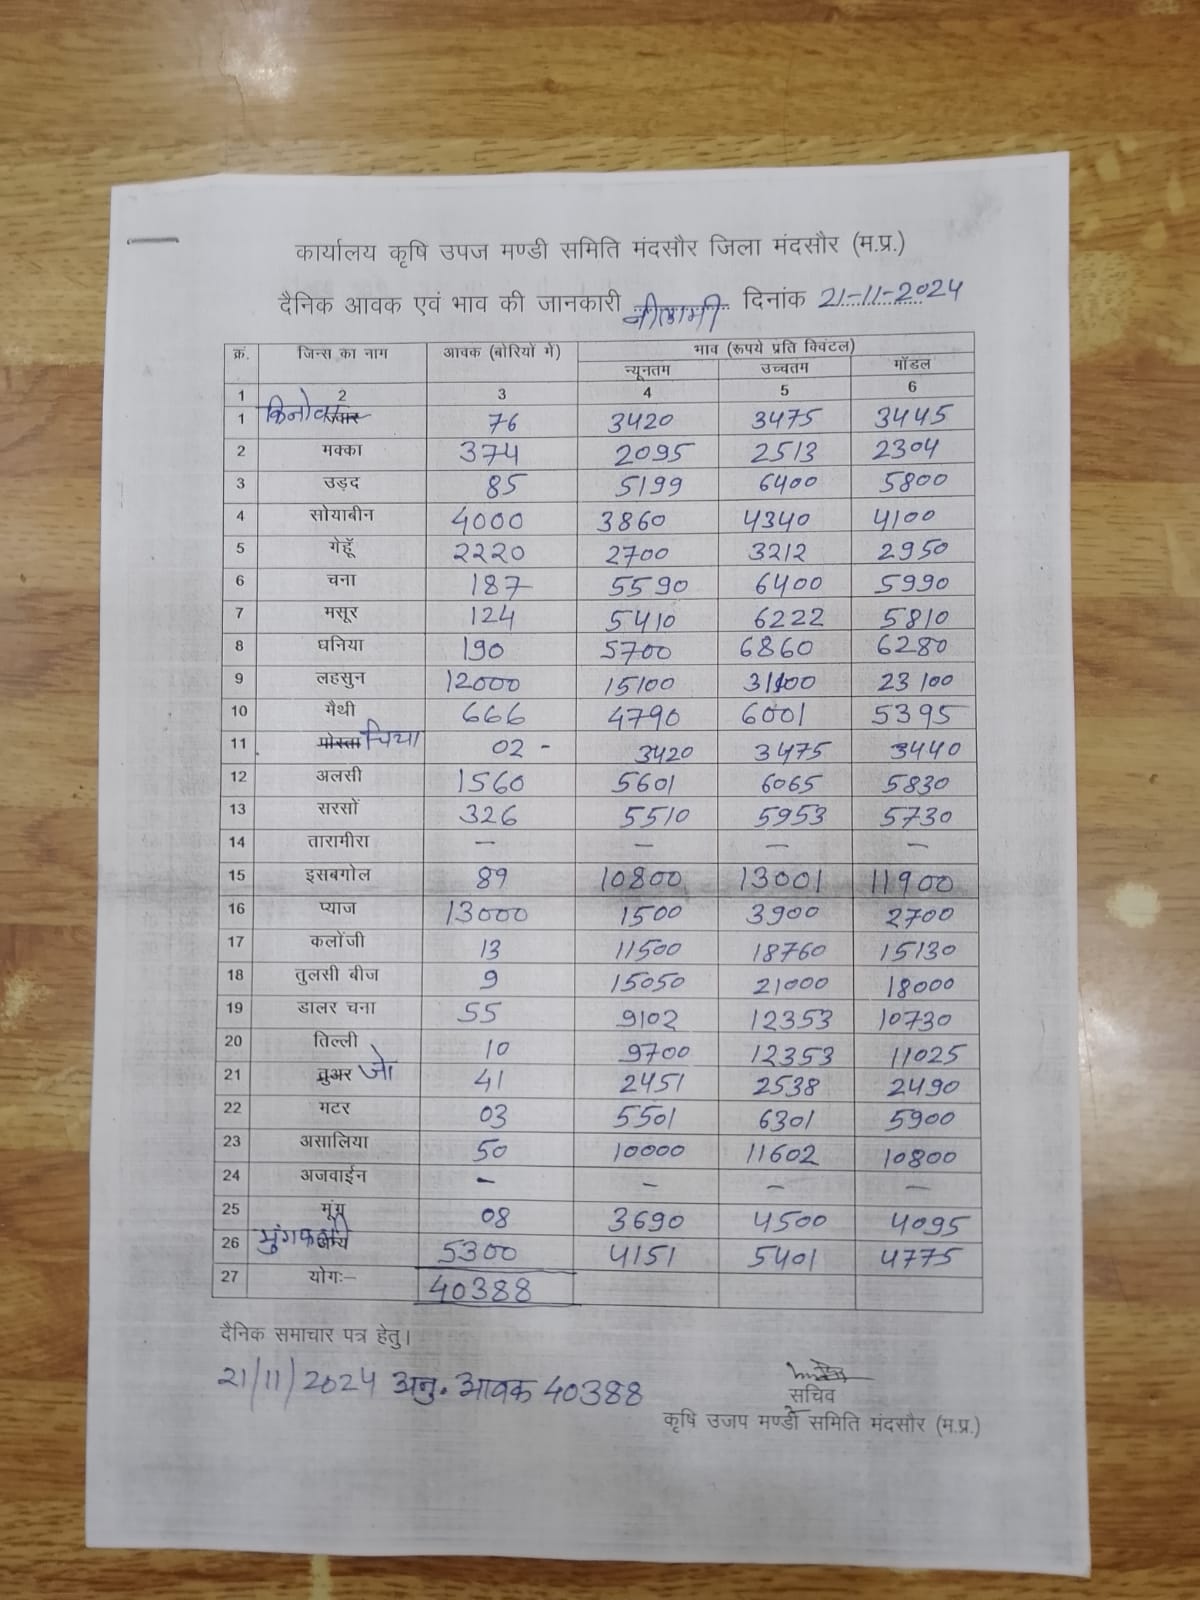 कार्यालय कृषि उपज मण्डी समिति मंदसौर जिला मंदसौर (म.प्र.)
दैनिक आवक एवं भाव की जानकारी नीलामी दिनांक 21-11-2024
क्रं. जिन्स का नाम आवक (बोरियों में) भाव (रूपये प्रति क्विंटल)
न्यूनतम उच्चतम मॉडल
1 2 3 4 5 6
1 किनोवा 76 3420 3475 3445
2 मक्का 374 2095 2513 2304
3 उड़द 85 5199 6400 5800
4 सोयाबीन 4000 3860 4340 4100
5 गेहूॅ २२२0 2700 3212 2950
6 चना 187 5590 6400 5990
7 मसूर 124 5410 6222 5810
8 धनिया 190 5700 6860 6280
9 लहसुन 12000 15100 31100 23100
10 मैथी 666 4790 6001 5395
11 पोस्ता चिया 02 - 3420 3475 3440
12 अलसी 1560 5601 6065 5830
13 सरसों 326 5510 5953 5730
14 तारामीरा — — — —
15 इसबगोल 89 10800 13001 11900
16 प्याज 13000 1500 3900 2700
17 कलोंजी 13 11500 18760 15130
18 तुलसी बीज 9 15050 21000 18000
19 डालर चना 55 9102 12353 10730
20 तिल्ली 10 9700 12353 11025
21 तुअर जो 41 2451 2538 2490
22 मटर 03 5501 6301 5900
23 असालिया 50 10000 11602 10800
24 अजवाईन — — — —
25 मूंग 08 3690 4500 4095
26 मुंगफली अन्य 5300 4151 5401 4775
27 योगः– 40388
दैनिक समाचार पत्र हेतु।
२1/11/2024 अनु. आवक 40388
सचिव
कृषि उजप मण्डी समिति मंदसौर (म.प्र.)